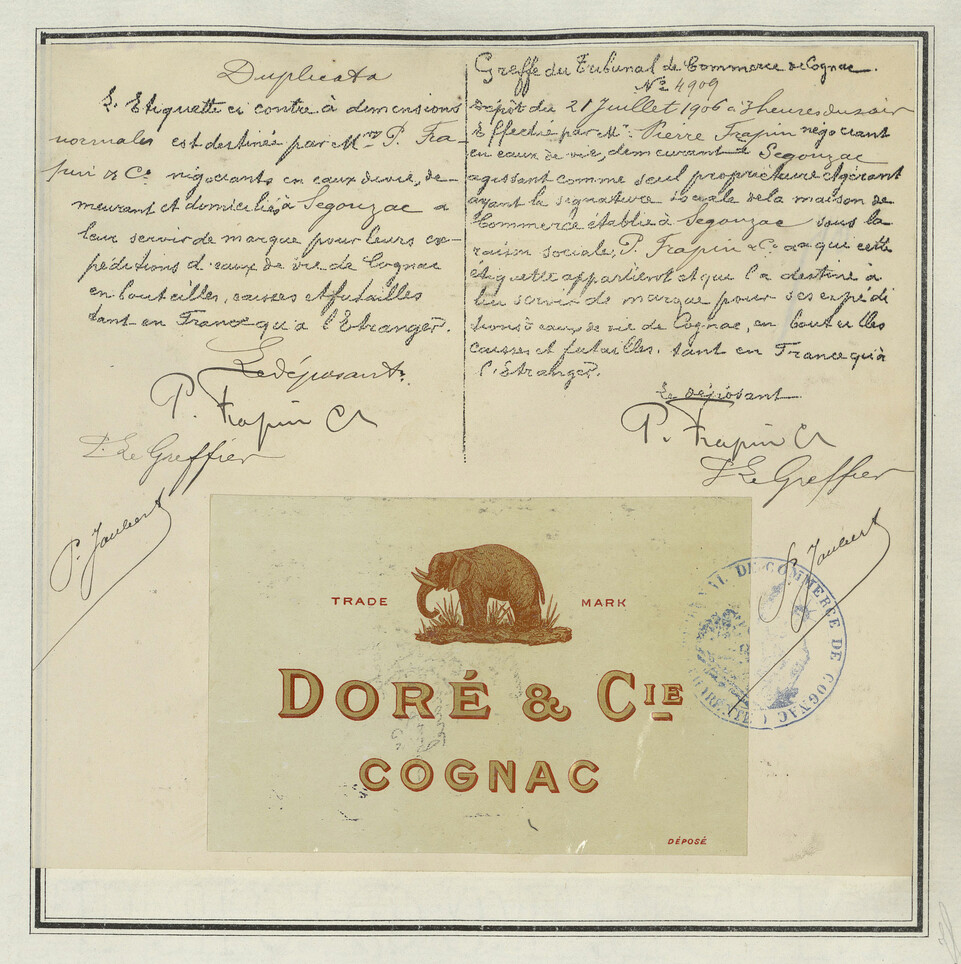 Duplicata
L'Etiquette ci contre à dimensions
normales est destinée par Mrs P. Fra-
pin & Co négociants en eaux de vie, de-
meurant et domiciliés à Segonzac a
leur servir de marque pour leurs ex-
péditions d'eaux de vie de Cognac
en bouteilles, caisses et futailles
tant en France qu'a l'Etranger.
Le déposant.
P. Frapin Co
Le Greffier
P. Jaubert
Greffe du Tribunal de Commerce de Cognac.
No 4909
Dépôt du 21 Juillet 1906 à 3 heures du soir
Effectué par Mr. Pierre Frapin négociant
en eaux de vie, demeurant à Segonzac
agissant comme seul propriétaire et gérant
ayant la signature sociale de la maison de
Commerce établie à Segonzac sous la
raison sociale, P. Frapin & Co a qui cette
étiquette appartient et qui l'a destine à
lui servir de marque pour ses expédi
tions d'eaux de vie de Cognac, en bouteilles
caisses et futailles. tant en France qu'à
l'Etranger.
Le déposant
P. Frapin Co
Le Greffier
P. Jaubert
TRADE MARK
DORÉ & CIE
COGNAC
DÉPOSÉ
TRIBUNAL DE COMMERCE DE COGNAC (CHARENTE)